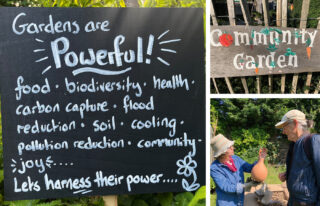 Gardens are
Powerful!
food · biodiversity · health ·
carbon capture · flood
reduction · soil · cooling ·
pollution reduction · community ·
joy ····
Lets harness their power ....
Community
Garden